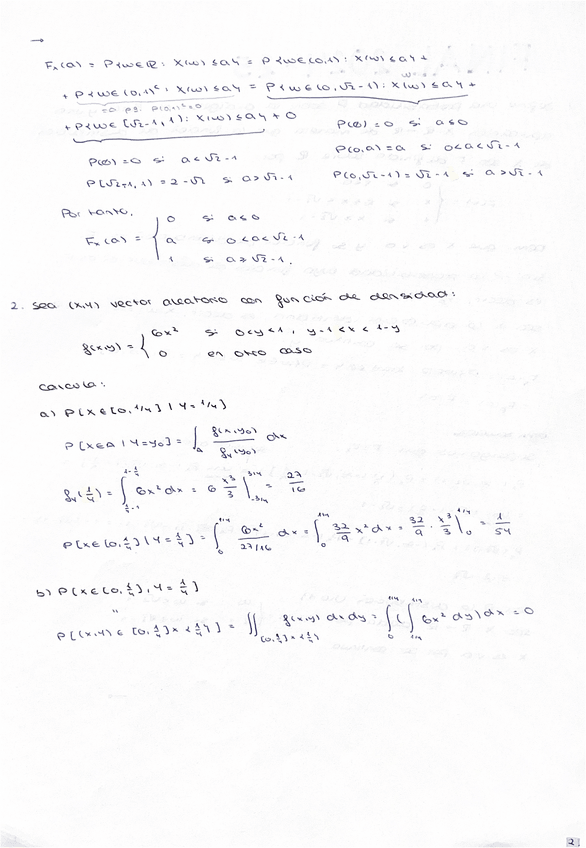 →
F_X(a) = P{w∈ℝ: X(w)≤a} = P{w∈(0,1): X(w)≤a} +
+ P{w∈(0,1)ᶜ: X(w)≤a} = P{w∈(0,√2-1): X(w)≤a} +
+ P{w∈[√2-1,1): X(w)≤a} + 0
P(∅)=0 si a≤0
P(∅)=0 si a<√2-1
P(0,a)=a si 0<a<√2-1
P[√2-1,1)=2-√2 si a≥√2-1
P(0,√2-1)=√2-1 si a≥√2-1
Por tanto,
F_X(a) = { 0 si a≤0
a si 0<a<√2-1
1 si a≥√2-1.
2. Sea (X,Y) vector aleatorio con función de densidad:
f(x,y) = { 6x² si 0<y<1, y-1<x<1-y
0 en otro caso
Calcula:
a) P[X∈[0,1/4] | Y=1/4]
P[X∈A | Y=y₀] = ∫_A f(x,y₀)/f_Y(y₀) dx
f_Y(1/4) = ∫_{1/4-1}^{1-1/4} 6x² dx = 6 x³/3 |_{-3/4}^{3/4} = 27/16
P[X∈[0,1/4] | Y=1/4] = ∫_0^{1/4} 6x²/(27/16) dx = ∫_0^{1/4} 32/9 x² dx = 32/9 · x³/3 |_0^{1/4} = 1/54
b) P[X∈[0,1/4], Y=1/4]
"
P[(X,Y)∈[0,1/4]×{1/4}] = ∬_{[0,1/4]×{1/4}} f(x,y) dx dy = ∫_0^{1/4} (∫_{1/4}^{1/4} 6x² dy) dx = 0
2